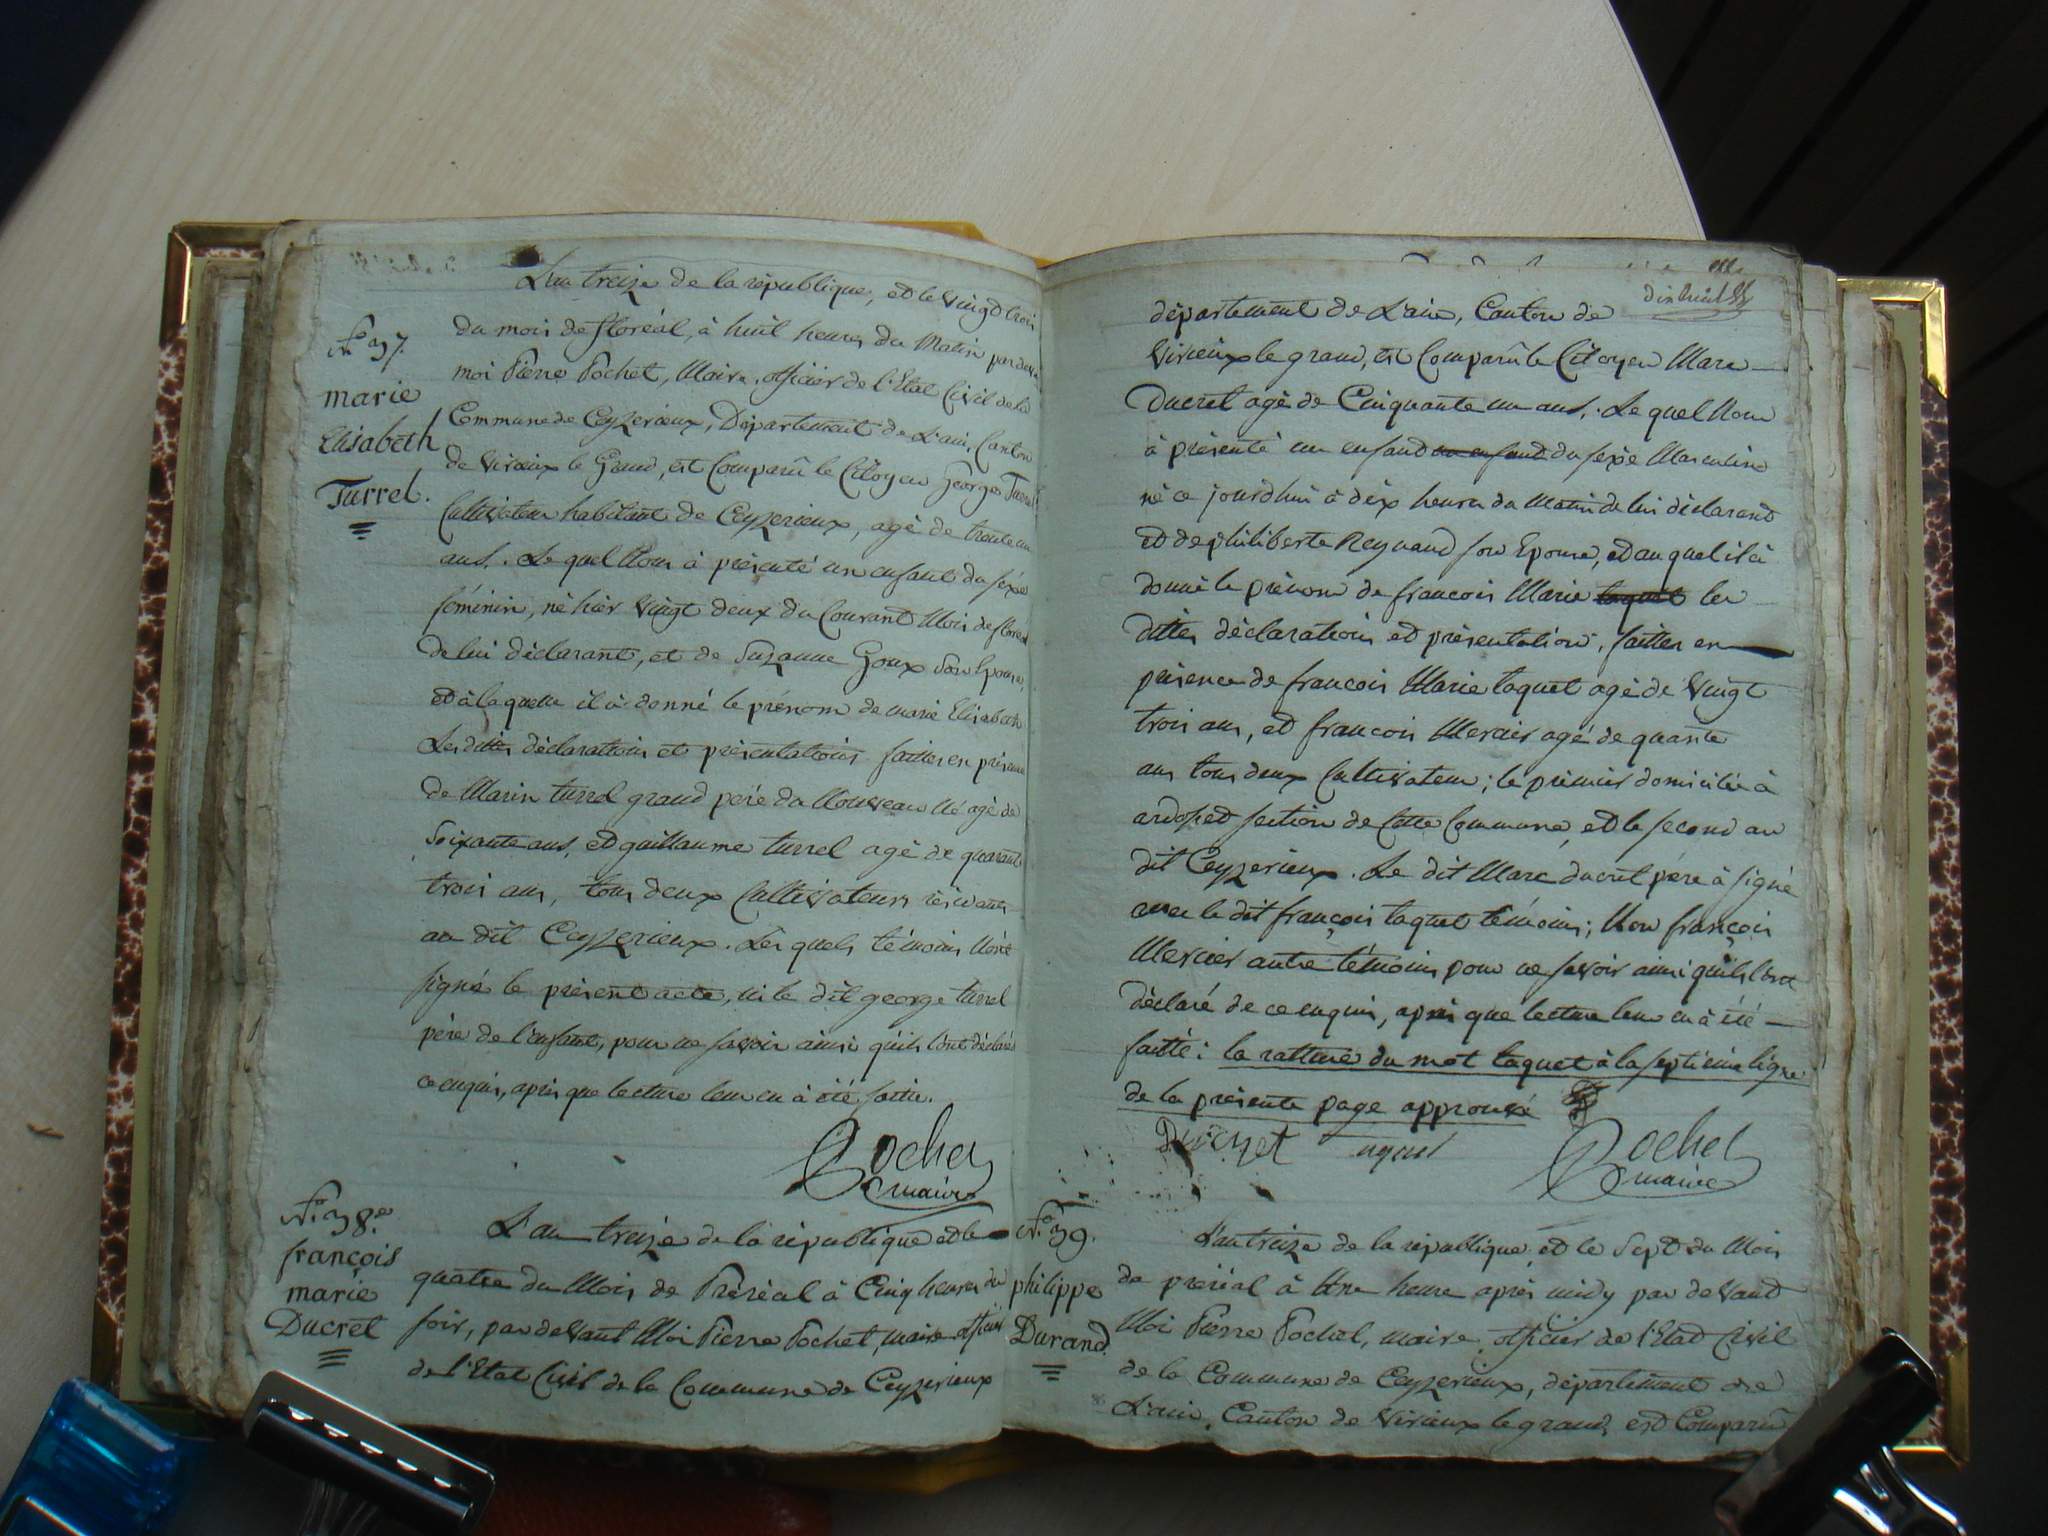 L'an treize de la république, et le vingt trois
du mois de floréal, à huit heures du Matin par deva
moi Pierre Pochet, Maire, officier de l'Etat Civil de la
Commune de Ceyzerieux, Département de L'ain, Canton
de virieux le Grand, est Comparû le Citoyen Georges Turrel
Cultivateur habitant de Ceyzerieux, agé de trente un
ans. Le quel Nous à présenté un enfant du sexe
féminin, né hier vingt deux du Courant Mois de floréal
de lui déclarant, et de Suzanne Goux son Epouse,
et à laquelle il à donné le prénom de marie Elisabeth
Les dittes déclarations et présentations faittes en présence
de Marin turrel grand pere du Nouveau Né agé de
soixante ans, et guillaume turrel agé de quarante
trois ans, tous deux Cultivateurs résidants
au dit Ceyzerieux. Les quels témoins n'ont
signé le présent acte, ni le dit george turrel
père de l'enfant, pour ne savoir ainsi quils l'ont déclaré
ce enquis, après que lecture leur en à été faitte.
Pochet
maire
N.o 37.
marie
Elisabeth
Turrel.
N.o 38.
françois
marie
Ducret
L'an treize de la république et le
quatre du Mois de Préréal à Cinq heures du
soir, par devant Moi Pierre Pochet, maire officier
de l'Etat Civil de la Commune de Ceyzerieux
dix huit
département de L'ain, Canton de
Virieux le grand, est Comparû le Citoyen Marc
Ducret agé de Cinquante un ans. Le quel Nous
à présenté un enfand un enfand du sexe Masculin
né ce jourdhui à dix heures du Matin de lui déclarand
et de philiberte Reynaud son Epouse, et au quel il à
donné le prénom de francois Marie taquet les
dittes déclarations et présentation, faittes en
présence de francois Marie taquet agé de vingt
trois ans, et francois Mercier agé de quarante
ans tous deux Cultivateur; le premier domicilié à
ardosset section de cette Commune, et le second au
dit Ceyzerieux. Le dit Marc ducret père à signé
avec le dit françois taquet témoins; Non françois
Mercier autre témoins pour ne savoir ainsi quils l'ont
déclaré de ce enquis, après que lecture leur en à été
faitte: la ratture du mot taquet à la septieme ligne
de la présente page approuvé
Ducret Taquet Pochet
maire
N.o 39.
philippe
Durand.
L'an treize de la république, et le sept du Mois
de preréal à Une heure après midy par devand
Moi Pierre Pochet, maire, officier de l'Etat Civil
de la Commune de Ceyzerieux, département de
L'ain, Canton de Virieux le grand, est Comparû